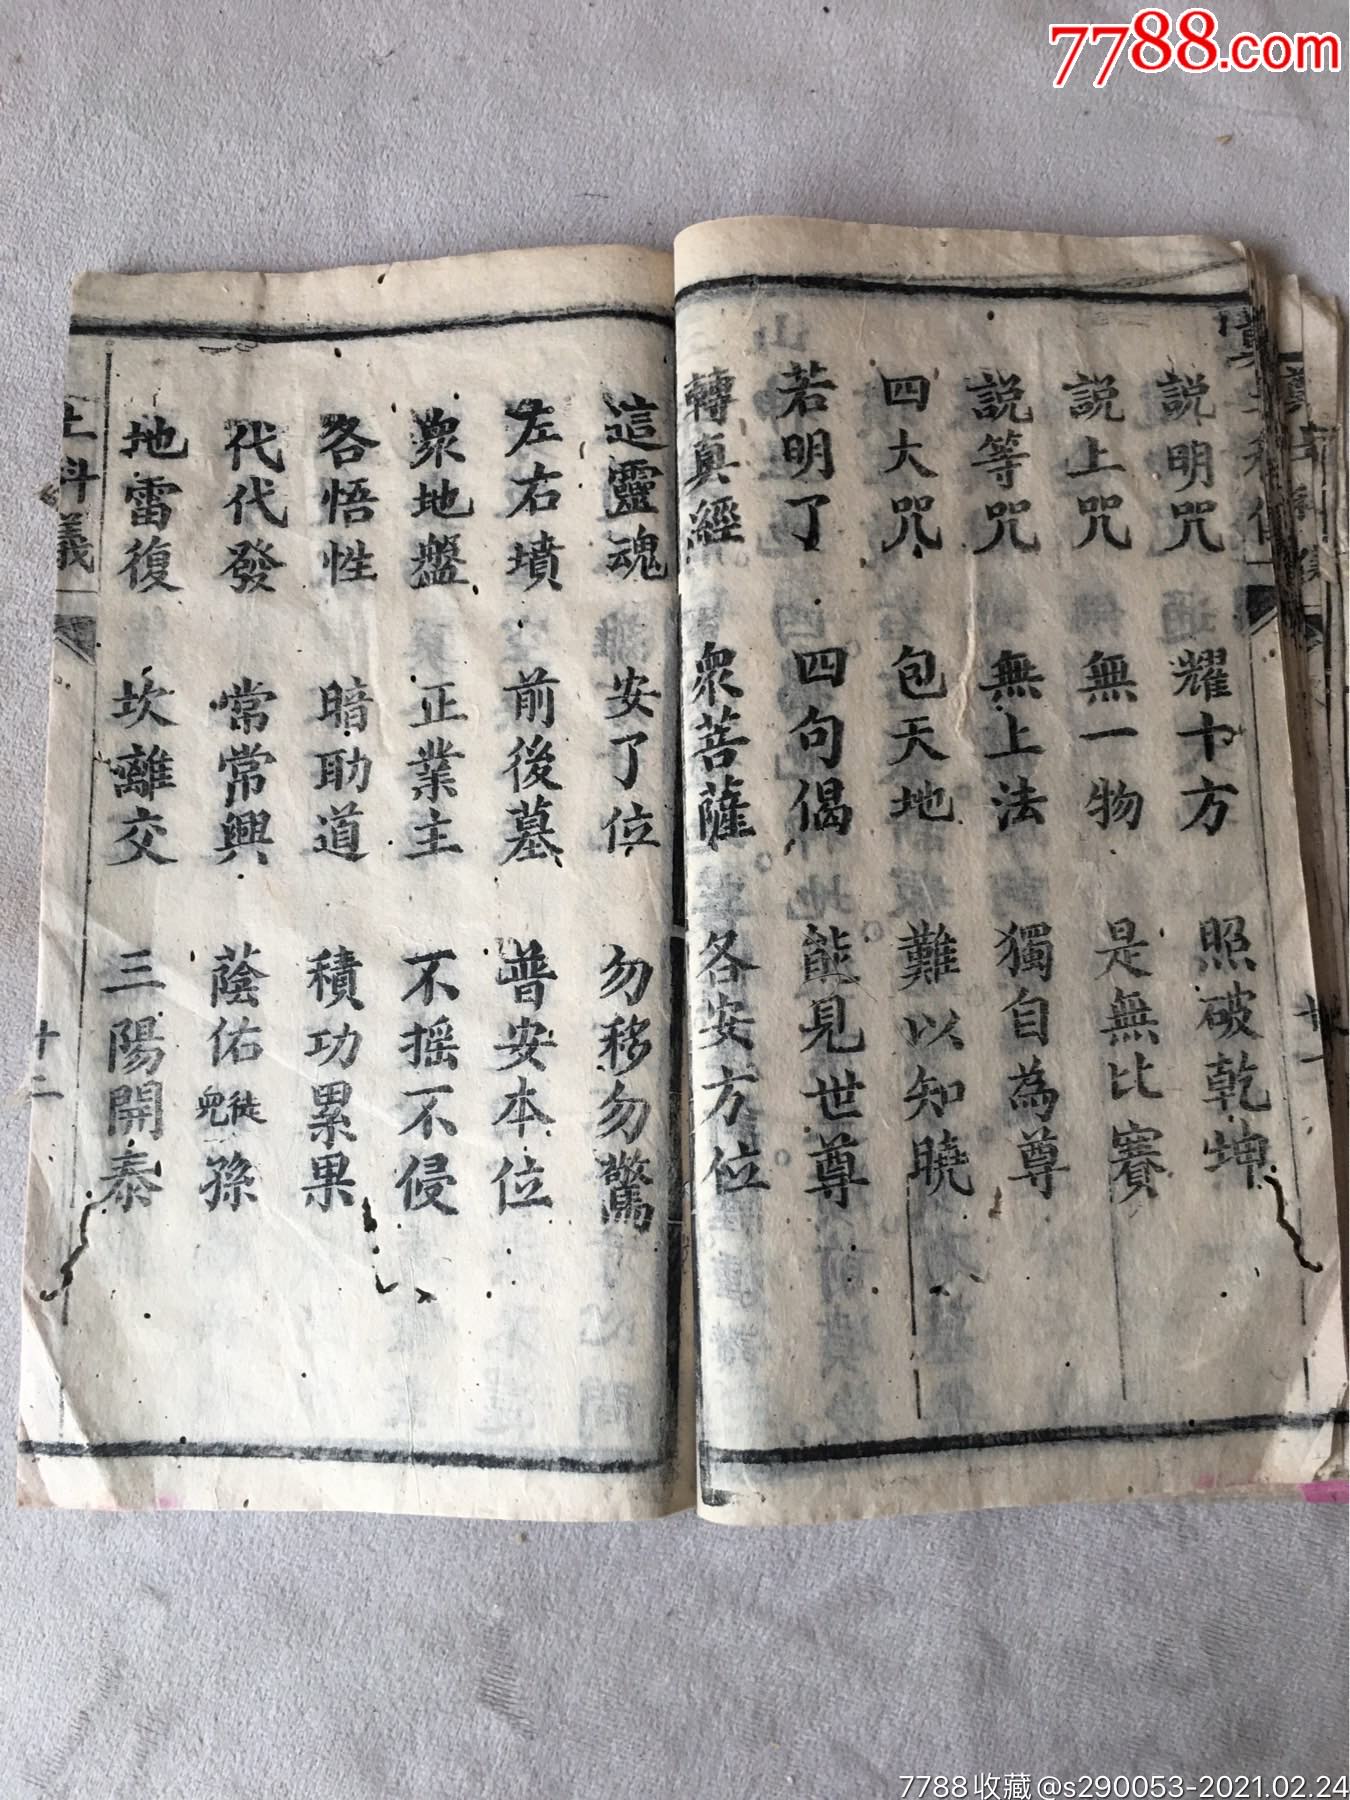 7788.com
説明咒 耀十方 照破乾坤
説上咒 無一物 是無比賽
説等咒 無上法 獨自為尊
四大咒 包天地 難以知曉
若明了 四句偈 能見世尊
轉真經 衆菩薩 各安方位
這靈魂 安了位 勿移勿驚
左右墳 前後墓 普安本位
衆地盤 正業主 不摇不侵
各悟性 暗助道 積功累果
代代發 常常興 蔭佑徒兒孫
地雷復 坎離交 三陽開泰
土科義 十二
7788收藏@s290053-2021.02.24